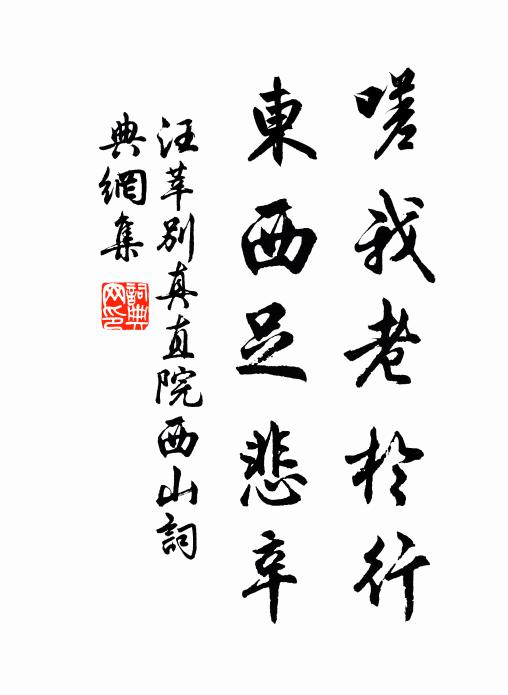 嗟我老於行
東西足悲辛
汪莘別真直院西山詞
典網集
詞典網印